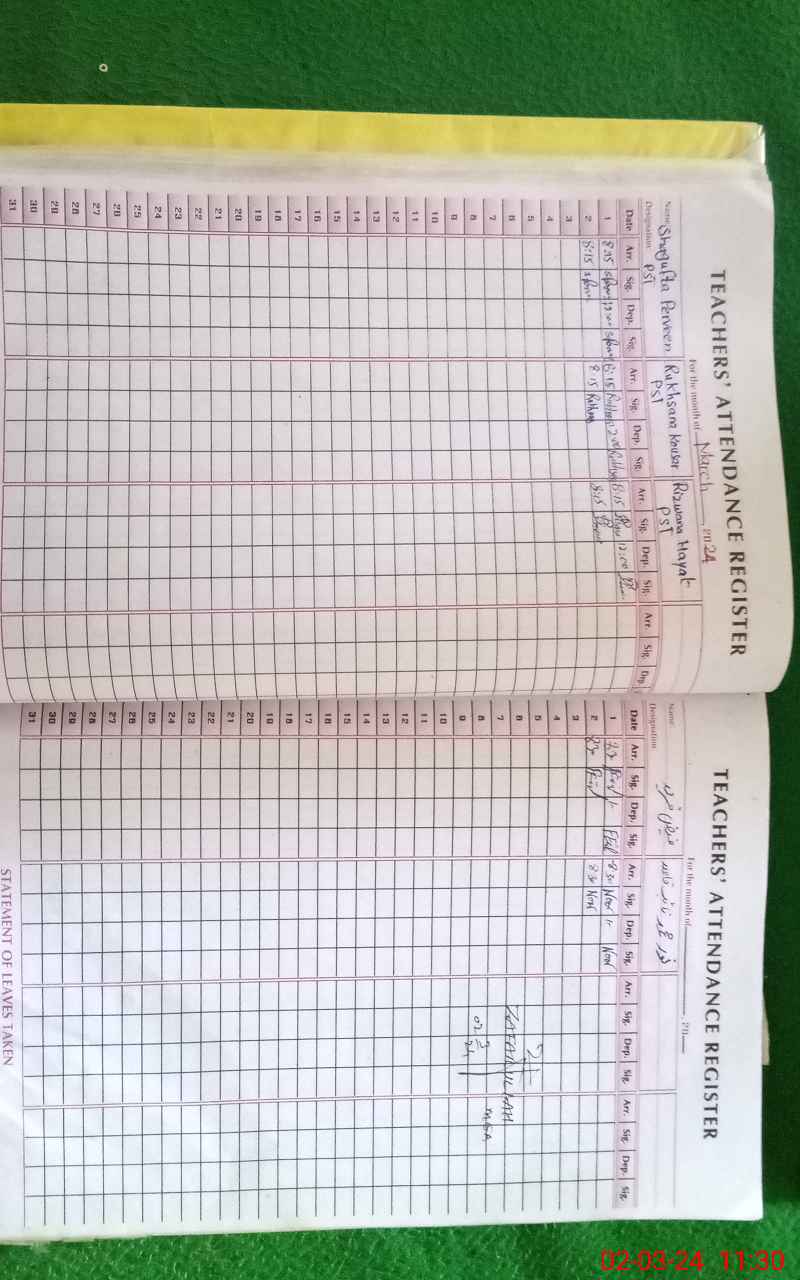 TEACHERS' ATTENDANCE REGISTER
For the month of March, 2024
Name Shagufta Perveen Rukhsana Kousar Rizwana Hayat
Designation PST PST PST
Date Arr. Sig. Dep. Sig. Arr. Sig. Dep. Sig. Arr. Sig. Dep. Sig. Arr. Sig. Dep.
1 8:15 8:15 2:00 8:15 12:00
2 8:15 8:15 8:15
3
4
5
6
7
8
9
10
11
12
13
14
15
16
17
18
19
20
21
22
23
24
25
26
27
28
29
30
31
TEACHERS' ATTENDANCE REGISTER
For the month of , 20
Name
Designation
Date Arr. Sig. Dep. Sig. Arr. Sig. Dep. Sig. Arr. Sig. Dep. Sig. Arr. Sig. Dep. Sig.
1 8:30 Noor Noor
2 8:30 Noor
3
4
5
6
7
8
9
10
11
12
13
14
15
16
17
18
19
20
21
22
23
24
25
26
27
28
29
30
31
ZAFAR ULLAH MEA
02 3 24
STATEMENT OF LEAVES TAKEN
02-03-24 11:30